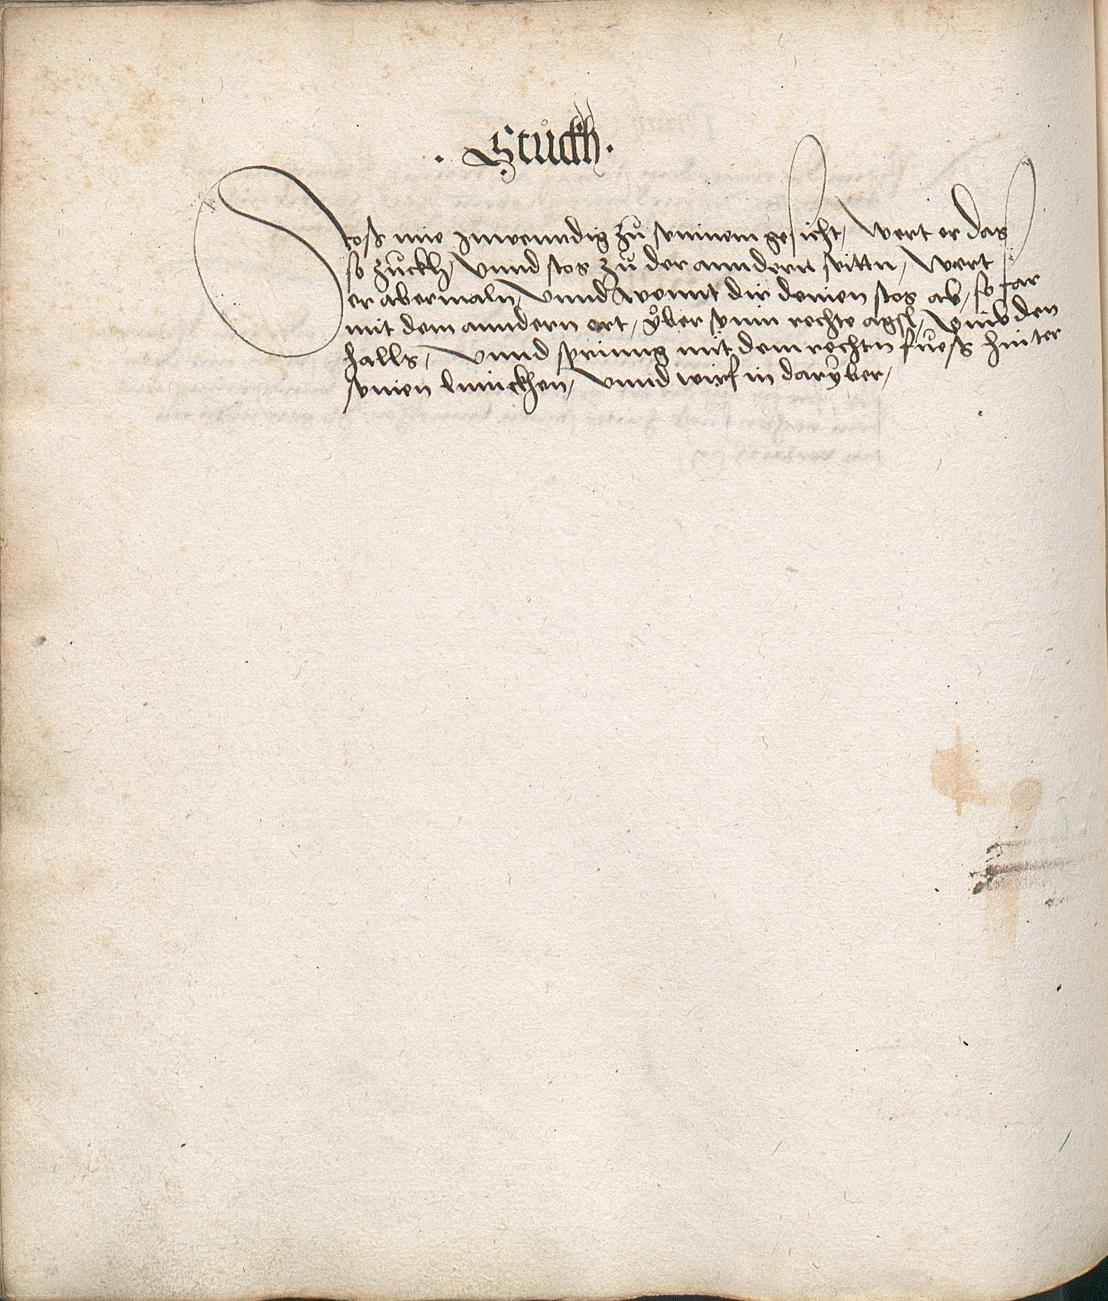 . Stuckh .
Stoß im Inwenndig zů seinem gesicht, Wert er das
so zuckh, Vnnd stos zů der anndern seittn, Wert
er abermaln, Vnnd wennt dir deinen stos ab, so far
mit dem anndern ort, yber sein rechte agsl, vmb den
halls, Vnnd spring mit dem rechtn fueß hinter
seinen linnckhen, Vnnd wirf in daryber,